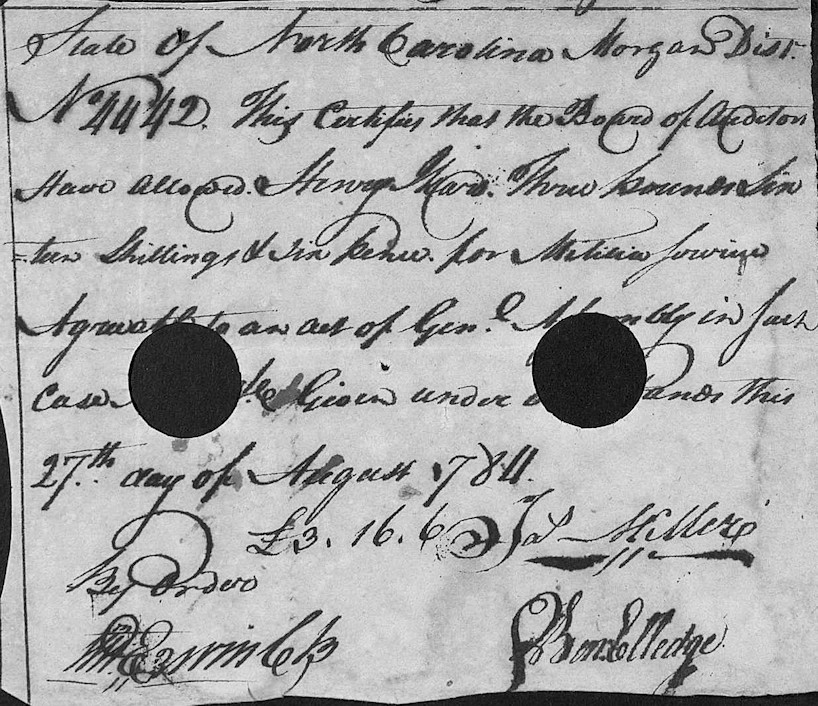 State of North Carolina Morgan Dist.
No. 4442. This Certifies that the Board of Auditors
Have allowed. Henry Three pounds Six
=teen Shillings & Six pence. for Militia Service
Agreeable to an act of Genl. Assembly in such
case Given under hands this
27th. day of August 1784.
£3. 16. 6 Jas Miller
By Order
Wm Erwin Clk
Ben. Elledge